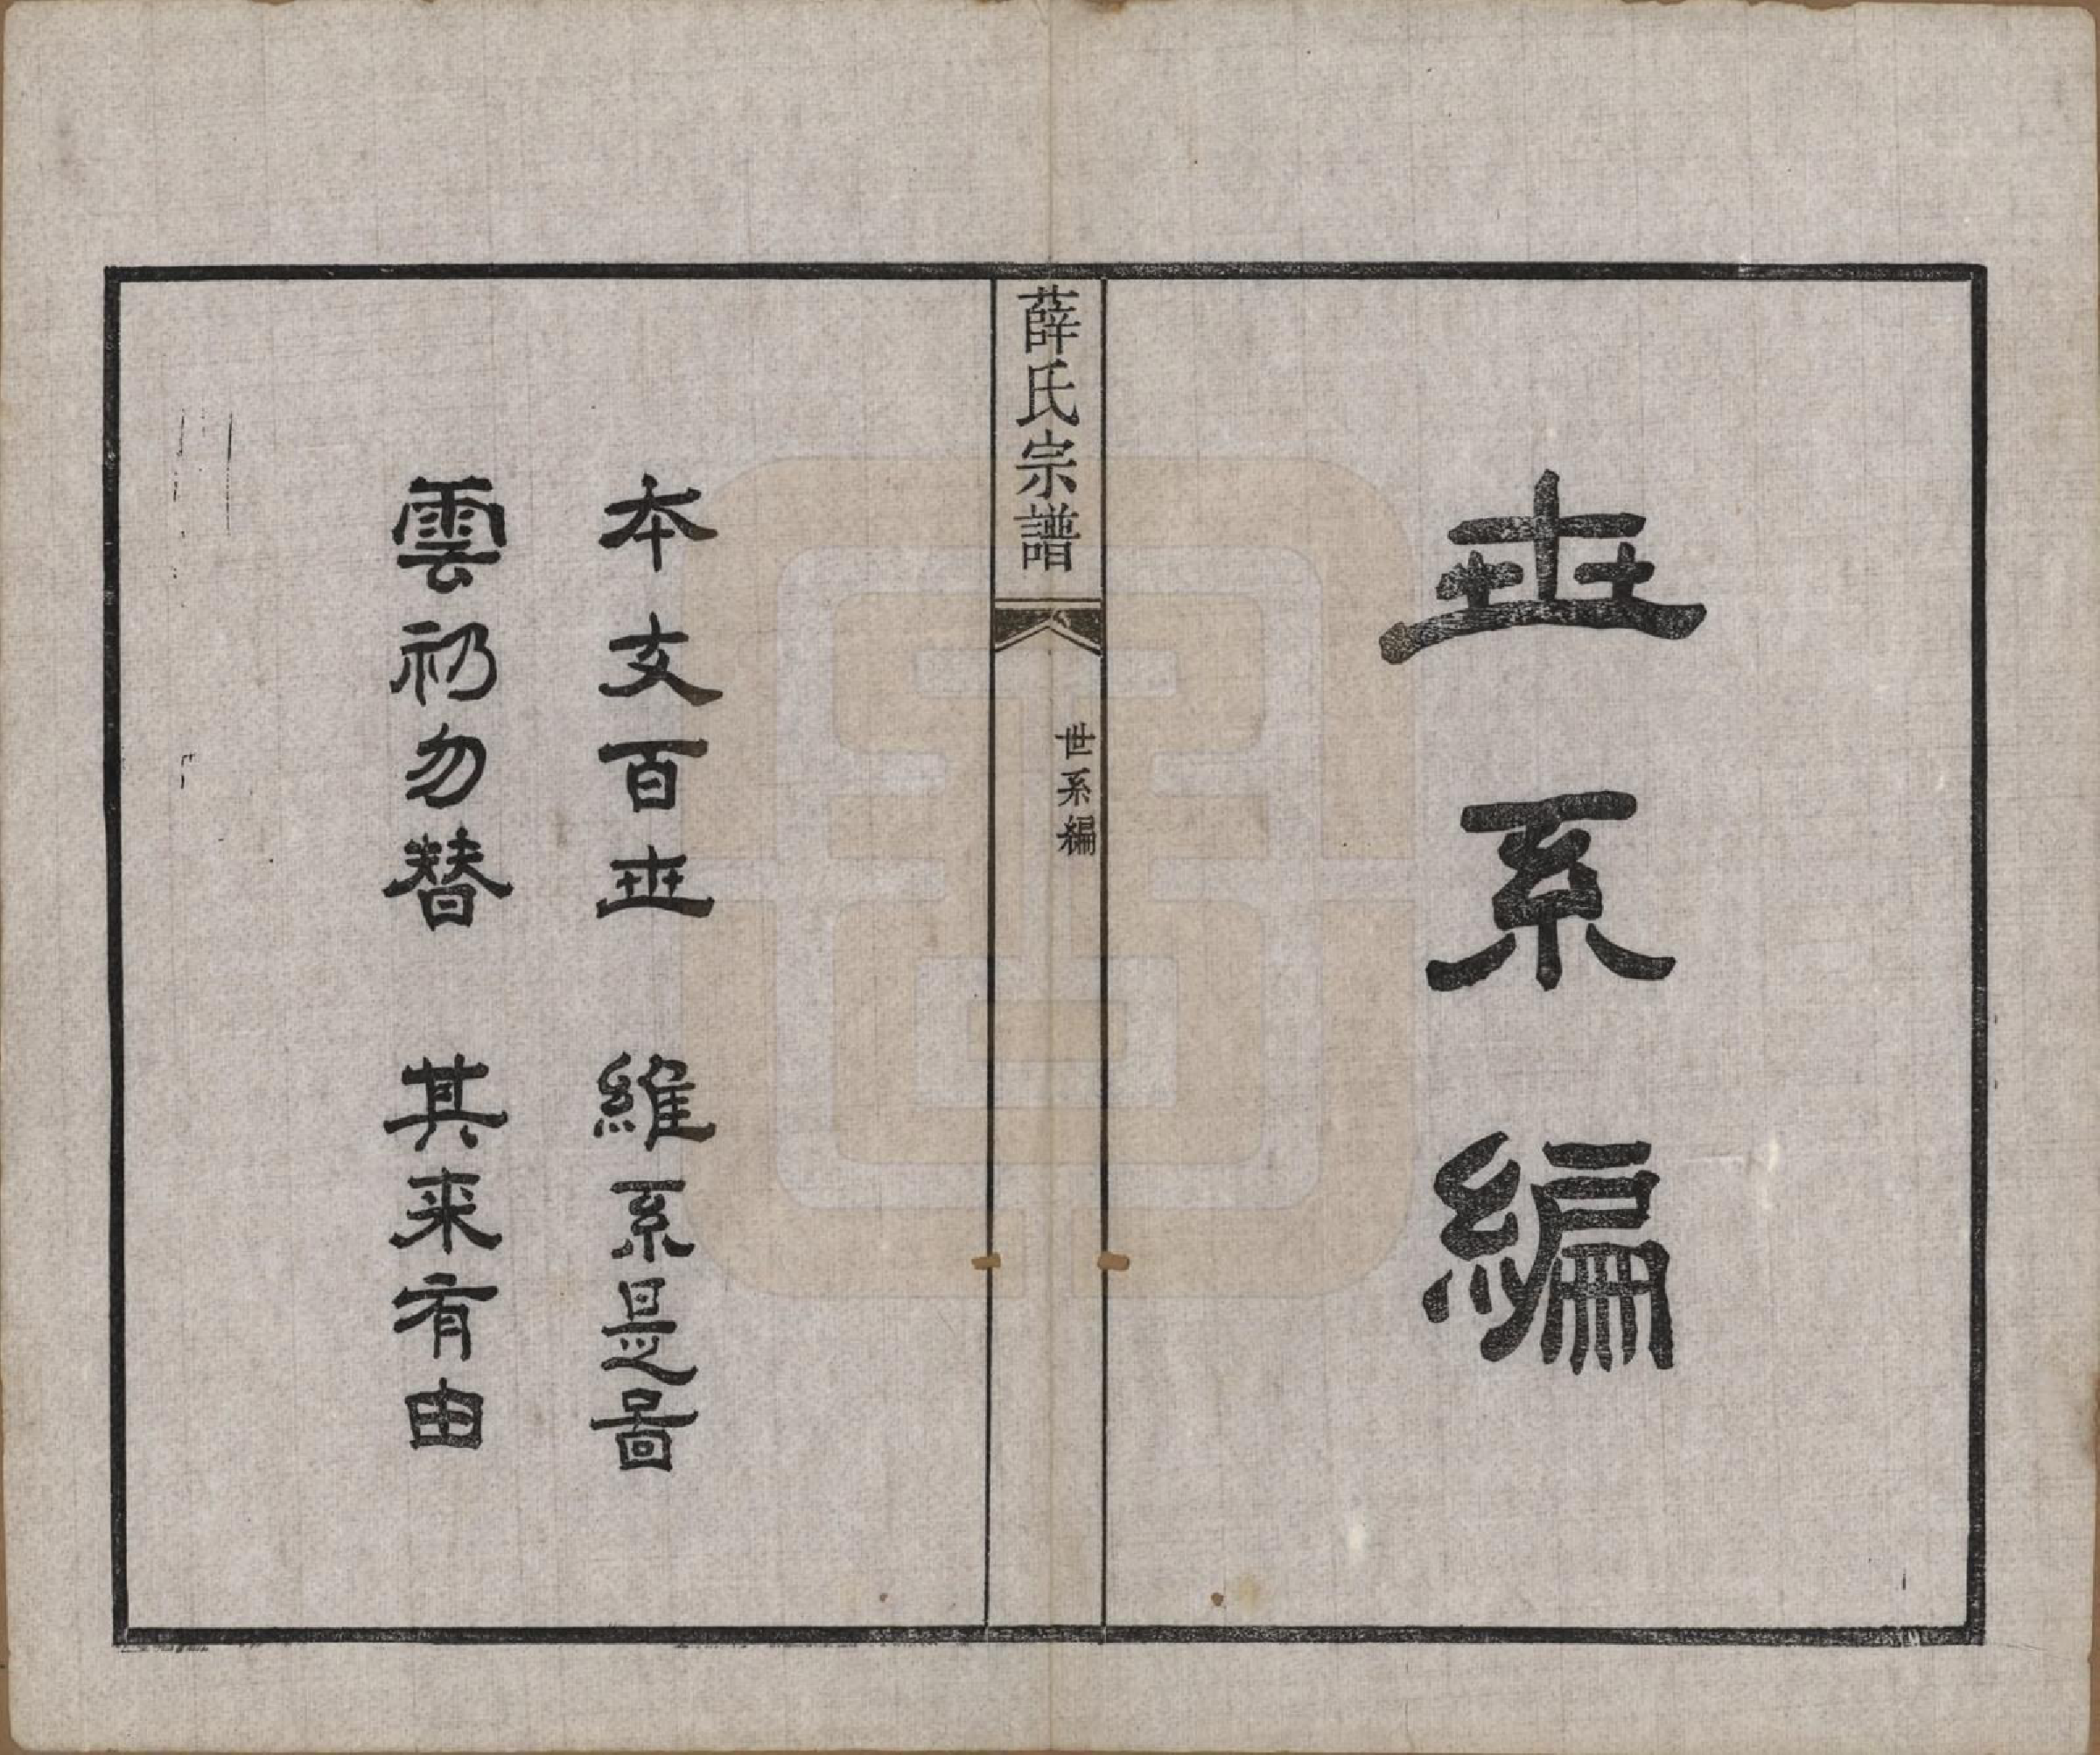 世系編
薛氏宗譜
世系編
本支百世 維系是啚
雲礽勿替 其来有由